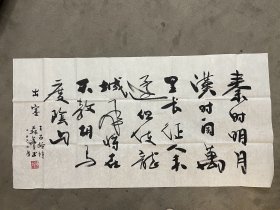 秦时明月
漢时関萬
里长征人未
还但使龍
城飛将在
不教胡马
度陰山
出塞